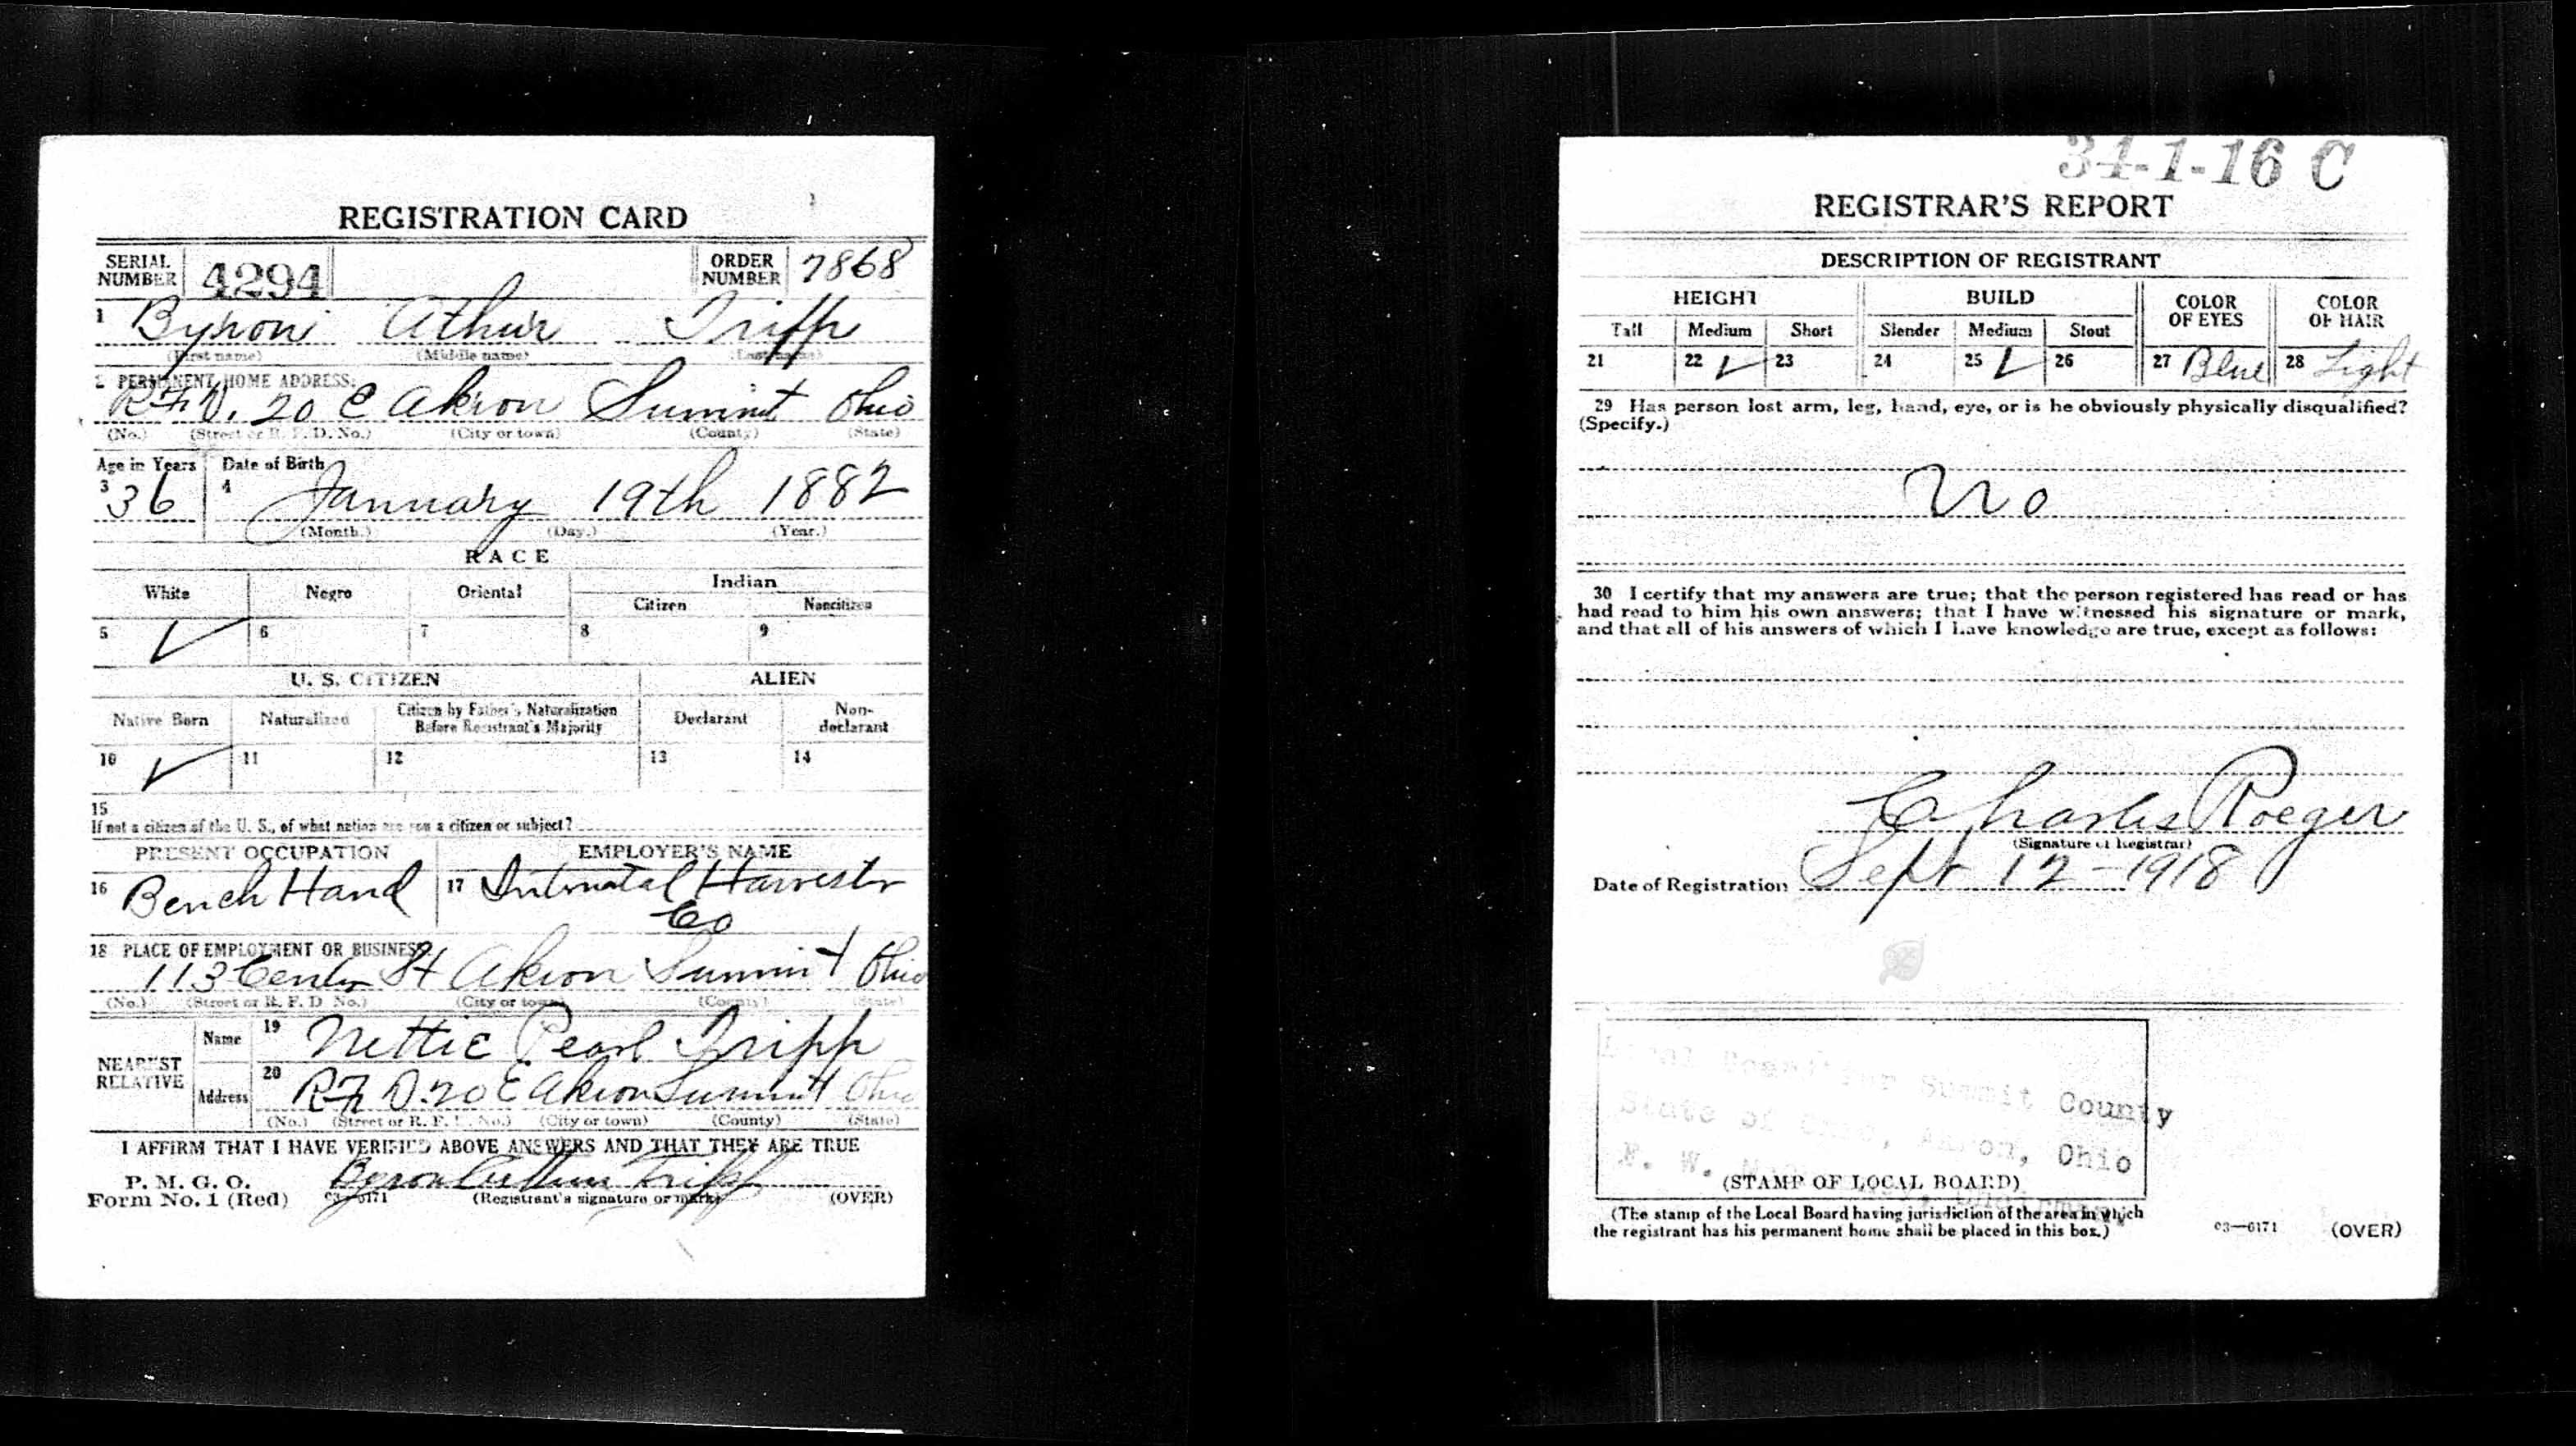 REGISTRATION CARD
SERIAL NUMBER 4294 ORDER NUMBER 7868
1 Byron Athur Tripp
(First name) (Middle name) (Last name)
2 PERMANENT HOME ADDRESS:
R.F.D. 20 E Akron Summit Ohio
(No.) (Street or R. F. D. No.) (City or town) (County) (State)
Age in Years Date of Birth
3 36 4 January 19th 1882
(Month.) (Day.) (Year.)
RACE
White Negro Oriental Indian
Citizen Noncitizen
5 ✓ 6 7 8 9
U. S. CITIZEN ALIEN
Native Born Naturalized Citizen by Father's Naturalization Before Registrant's Majority Declarant Non-declarant
10 ✓ 11 12 13 14
15
If not a citizen of the U. S., of what nation are you a citizen or subject?
PRESENT OCCUPATION EMPLOYER'S NAME
16 Bench Hand 17 Internatal Harvester
Co
18 PLACE OF EMPLOYMENT OR BUSINESS:
113 Center St Akron Summit Ohio
(No.) (Street or R. F. D. No.) (City or town) (County) (State)
NEAREST RELATIVE
Name 19 Nettie Pearl Tripp
Address 20 R.F.D. 20 E Akron Summit Ohio
(No.) (Street or R. F. D. No.) (City or town) (County) (State)
I AFFIRM THAT I HAVE VERIFIED ABOVE ANSWERS AND THAT THEY ARE TRUE
P. M. G. O.
Form No. 1 (Red) 03—6171 Byron Arthur Tripp
(Registrant's signature or mark) (OVER)
34-1-16 C
REGISTRAR'S REPORT
DESCRIPTION OF REGISTRANT
HEIGHT BUILD COLOR OF EYES COLOR OF HAIR
Tall Medium Short Slender Medium Stout
21 22 ✓ 23 24 25 ✓ 26 27 Blue 28 Light
29 Has person lost arm, leg, hand, eye, or is he obviously physically disqualified?
(Specify.)
No
30 I certify that my answers are true; that the person registered has read or has
had read to him his own answers; that I have witnessed his signature or mark,
and that all of his answers of which I have knowledge are true, except as follows:
Charles Roeger
(Signature of Registrar)
Date of Registration Sept 12-1918
Local Board for Summit County
State of Ohio, Akron, Ohio
F. W.
(STAMP OF LOCAL BOARD)
(The stamp of the Local Board having jurisdiction of the area in which
the registrant has his permanent home shall be placed in this box.)
03—6171 (OVER)